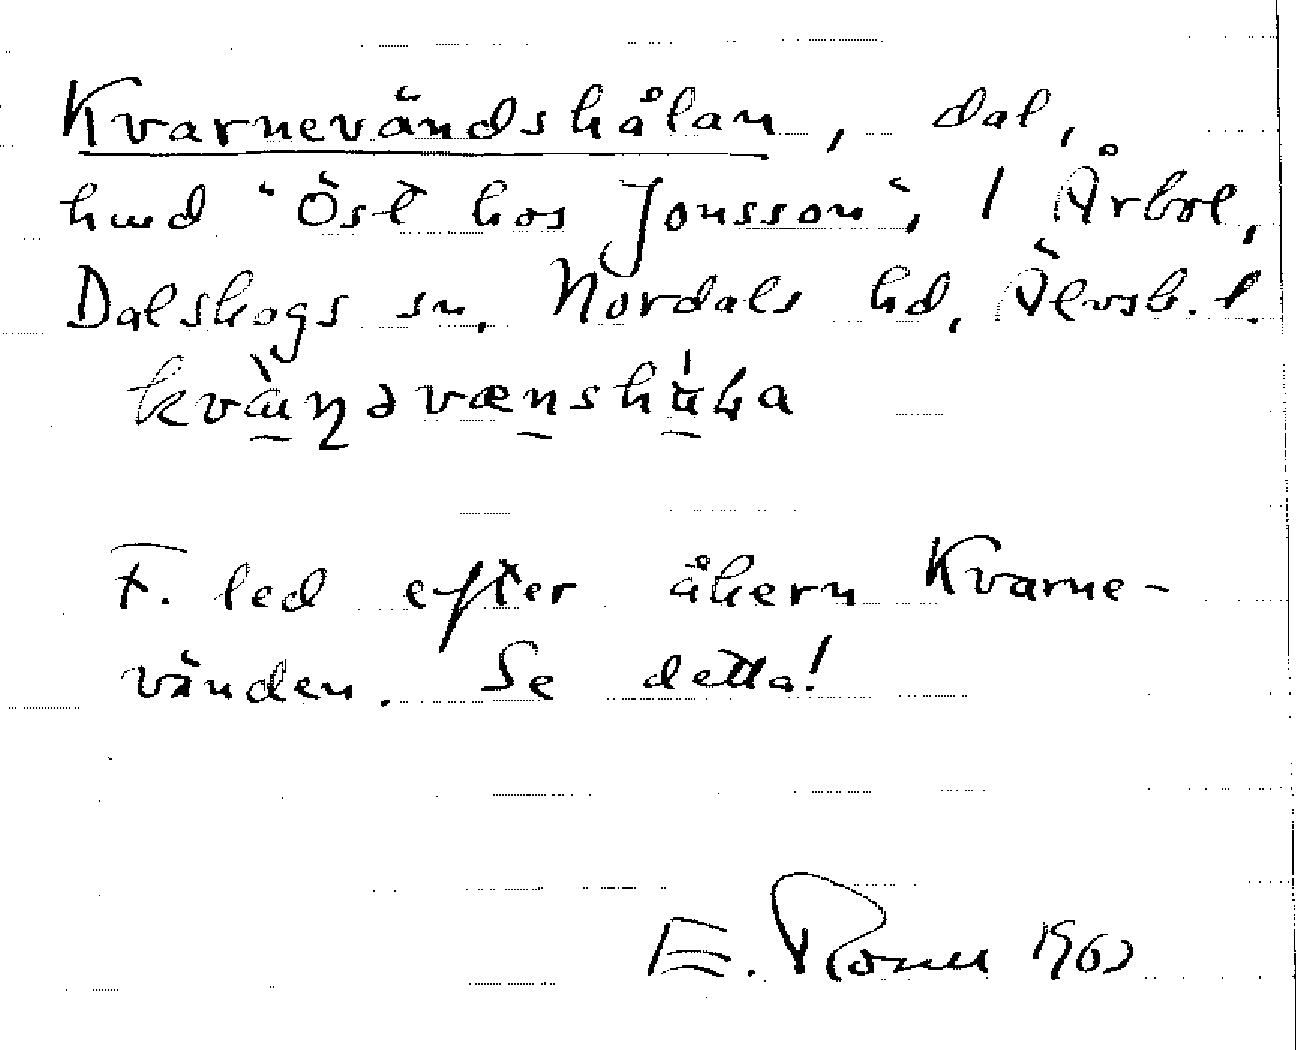 Kvarnevändshålan, dal,
hmd "Öst hos Jonsson", i Årbol,
Dalskogs sn, Nordals hd, Älvsb. l.
F. led efter åkern Kvarne-
vänden. Se detta!
E. 196